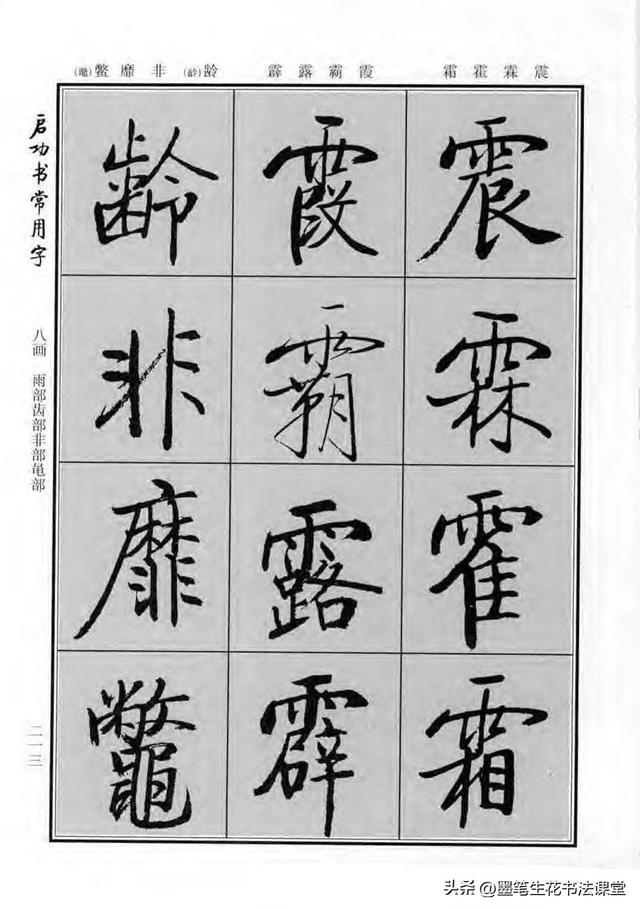 震霖霍霜
霞霸露霹
龄(齡)非靡鳖(鼈)
震霖霍霜
霞霸露霹
齡非靡鼈
启功书常用字
八画 雨部齿部非部黾部
二一三
头条 @墨笔生花书法课堂